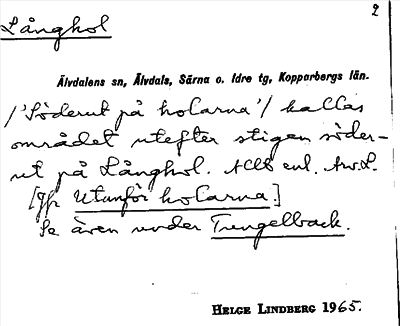 Långhol
2
Älvdalens sn, Älvdals, Särna o. Idre tg, Kopparbergs län.
/'Söderut på holarna'/ kallas
området utefter stigen söder-
ut på Långhol. enl. Aw.L.
[Jfr Utanför holarna.]
Se även under Trengelback.
HELGE LINDBERG 1965.